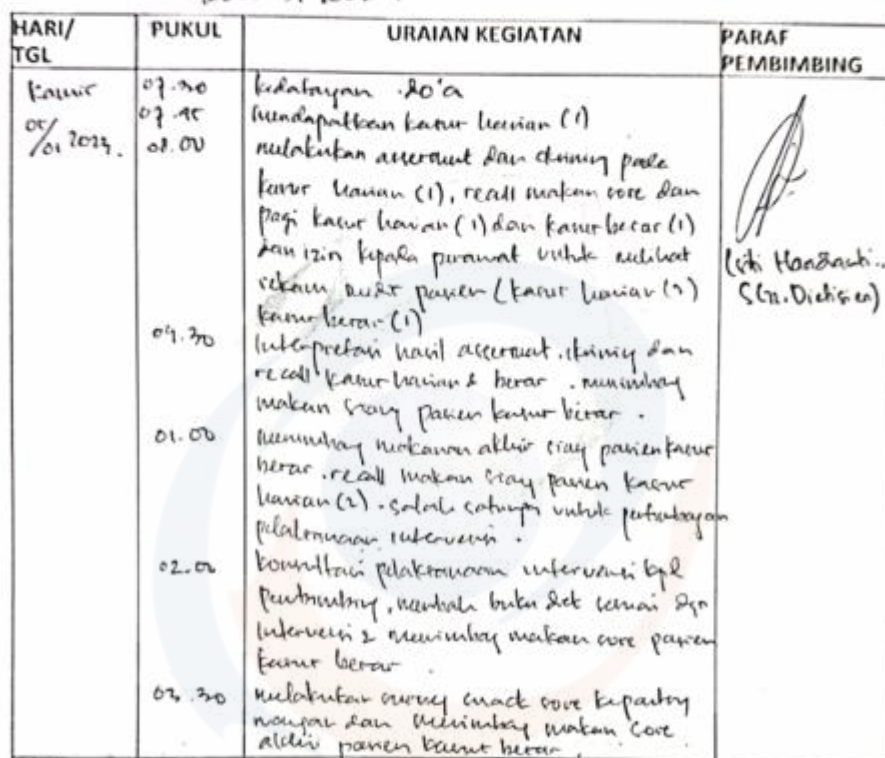 HARI/ TGL PUKUL URAIAN KEGIATAN PARAF PEMBIMBING
Kamis 07.30 kedatangan . do'a
05/01 2023. 07.45 mendapatkan kasus harian (1)
08.00 melakukan assesment dan skrining pada
kasus harian (1), recall makan sore dan
pagi kasus harian (1) dan kasus besar (1)
dan izin kepada perawat untuk melihat
rekam medis pasien (kasus harian (2)
kasus besar (1)
(siti
S.Gz. Dietisien)
09.30 Interpretasi hasil assesment, skrining dan
recall kasus harian & besar . menimbang
makan siang pasien kasus besar .
01.00 menimbang makanan akhir siang pasien kasus
besar . recall makan siang pasien kasus
harian (2) . salah satunya untuk
pelaksanaan intervensi .
02.00 konsultasi pelaksanaan intervensi
pembimbing, buku diet sesuai dgn
intervensi & menimbang makan sore pasien
kasus besar .
03.30 melakukan survey snack sore
dan menimbang makan sore
akhir pasien kasus besar .